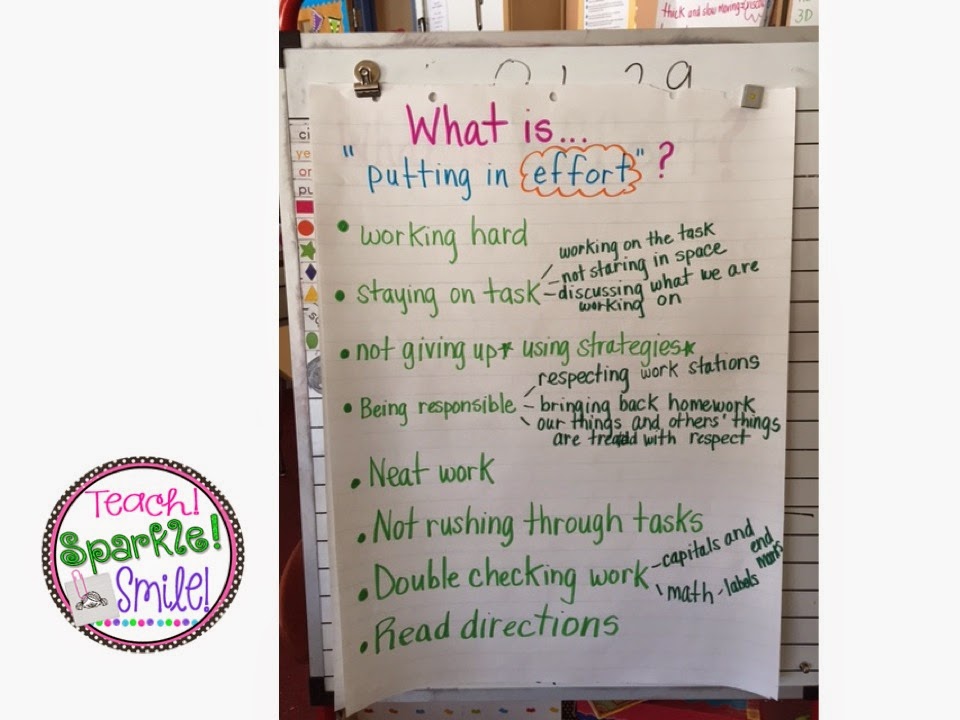 thick and slow moving
3D
What is...
"putting in effort"?
• working hard
• staying on task
- working on the task
- not staring in space
- discussing what we are
working on
• not giving up* using strategies*
• Being responsible
- respecting work stations
- bringing back homework
- our things and others' things
are treated with respect
• Neat work
• Not rushing through tasks
• Double checking work
- capitals and
end
marks
- math - labels
• Read directions
Teach!
Sparkle!
Smile!